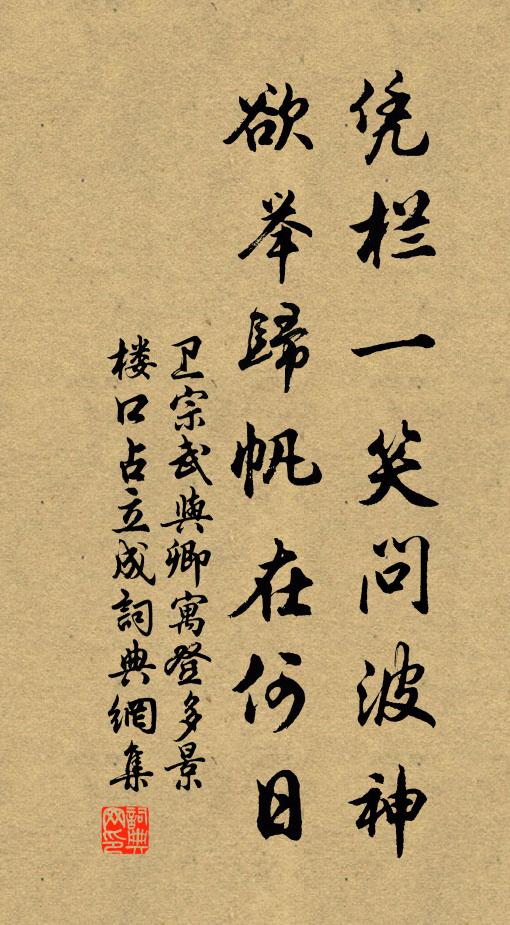 凭栏一笑问波神
欲举歸帆在何日
卫宗武與卿寓登多景
楼口占立成詞典網集
詞典网印